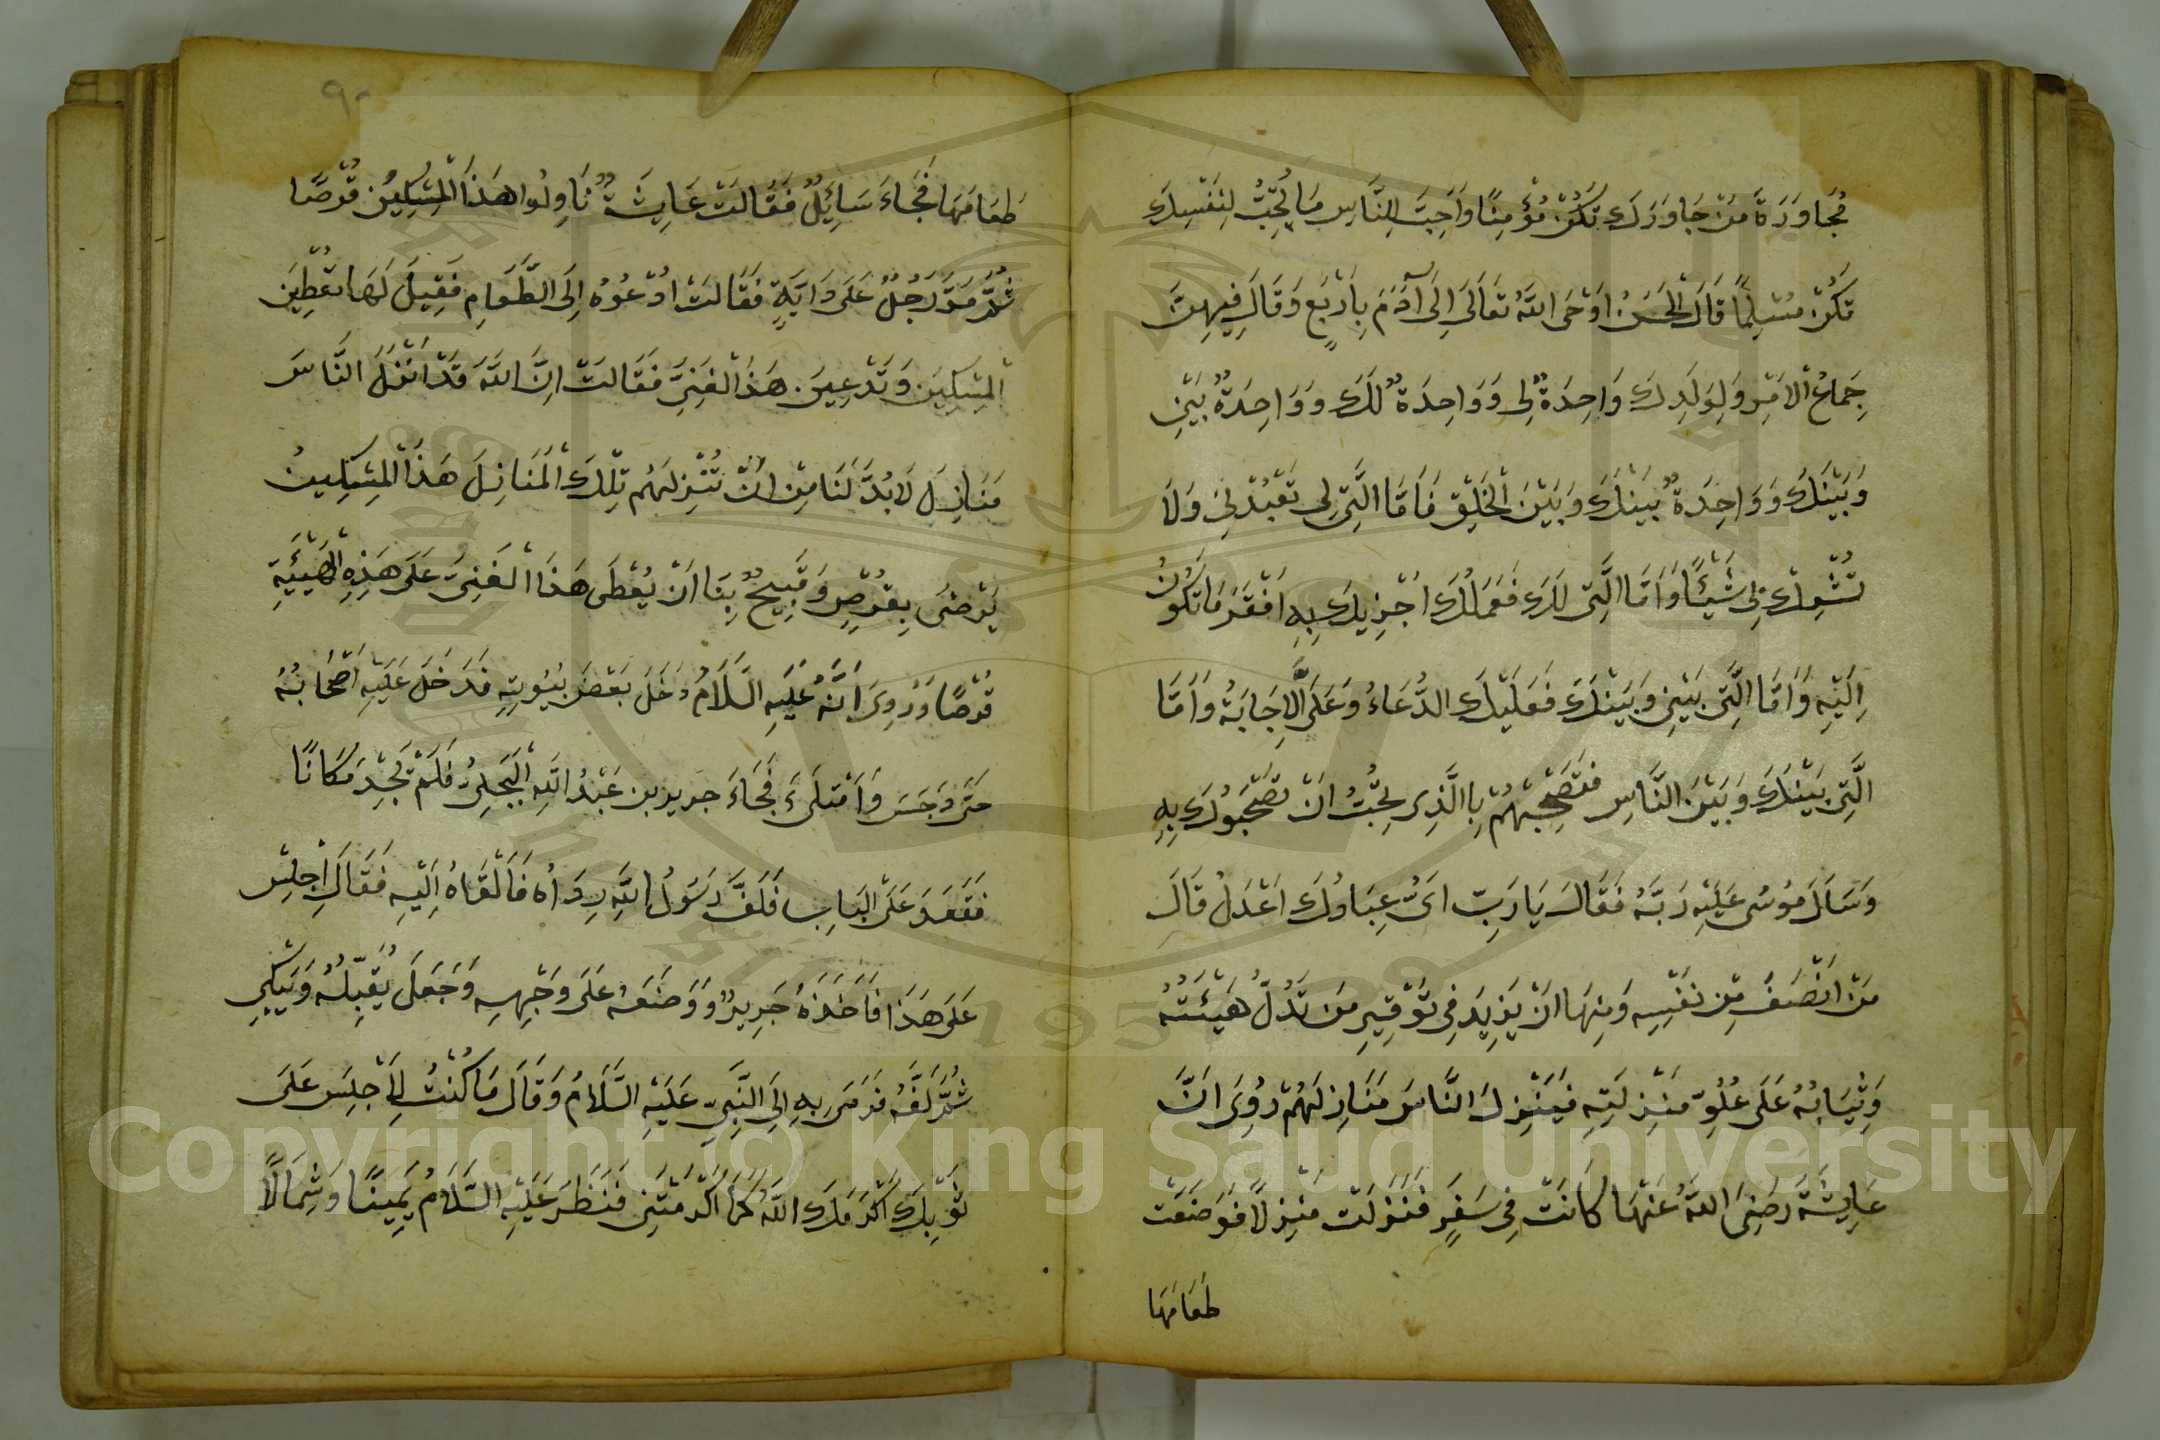 مُجَاوَرَةَ مَنْ جَاوَرَكَ تَكُنْ مُؤْمِنًا وَاَحِبَّ لِلنَّاسِ مَا تُحِبُّ لِنَفْسِكَ
تَكُنْ مُسْلِمًا قَالَ الْحَسَنُ اَوْحَى اللّٰهُ تَعَالَى اِلَى آدَمَ بِاَرْبَعٍ وَقَالَ فِيهِنَّ
جِمَاعُ الْاَمْرِ وَلِوَلَدِكَ وَاحِدَةٌ لِى وَوَاحِدَةٌ لَكَ وَوَاحِدَةٌ بَيْنِى
وَبَيْنَكَ وَوَاحِدَةٌ بَيْنَكَ وَبَيْنَ الْخَلْقِ فَاَمَّا الَّتِى لِى تَعْبُدُنِى وَلَا
تُشْرِكْ بِى شَيْئًا وَاَمَّا الَّتِى لَكَ فَعَمَلُكَ اَجْزِيكَ بِهِ اَفْقَرَ مَا تَكُونُ
اِلَيْهِ وَاَمَّا الَّتِى بَيْنِى وَبَيْنَكَ فَعَلَيْكَ الدُّعَاءُ وَعَلَىَّ الْاِجَابَةُ وَاَمَّا
الَّتِى بَيْنَكَ وَبَيْنَ النَّاسِ فَتَصْحَبُهُمْ بِالَّذِى تُحِبُّ اَنْ تَصْحَبُوكَ بِهِ
وَسَاَلَ مُوسٰى عَلَيْهِ رَبَّهُ فَقَالَ يَا رَبِّ اَىُّ عِبَادِكَ اَعْدَلُ قَالَ
مَنْ اَنْصَفَ مِنْ نَفْسِهِ وَمِنْهَا اَنْ يَزِيدَ فِى تَوْقِيرِ مَنْ تَدُلُّ هَيْئَتُهُ
وَثِيَابُهُ عَلَى عُلُوِّ مَنْزِلَتِهِ فَيُنْزِلَ النَّاسَ مَنَازِلَهُمْ رُوِىَ اَنَّ
عَايِشَةَ رَضِىَ اللّٰهُ عَنْهَا كَانَتْ فِى سَفَرٍ فَنَزَلَتْ مَنْزِلًا فَوَضَعَتْ
طَعَامَهَا
٩٠
طَعَامَهَا فَجَاءَ سَائِلٌ فَقَالَتْ عَايِشَةُ نَاوِلُوا هَذَا الْمِسْكِينَ قُرْصًا
ثُمَّ مَرَّ رَجُلٌ عَلَى دَابَّةٍ فَقَالَتْ ادْعُوهُ اِلَى الطَّعَامِ فَقِيلَ لَهَا تُعْطِينَ
الْمِسْكِينَ وَتَدْعِينَ هَذَا الْغَنِىَّ فَقَالَتْ اِنَّ اللّٰهَ قَدْ اَنْزَلَ النَّاسَ
مَنَازِلَ لَابُدَّ لَنَا مِنْ اَنْ نُنْزِلَهُمْ تِلْكَ الْمَنَازِلَ هَذَا الْمِسْكِينُ
يَرْضٰى بِقُرْصٍ وَقَبِيحٌ بِنَا اَنْ نُعْطَى هَذَا الْغَنِىَّ عَلَى هَذِهِ الْهَيْئَةِ
قُرْصًا وَرُوِىَ اَنَّهُ عَلَيْهِ السَّلَامُ دَخَلَ بَعْضَ بُيُوتِهِ فَدَخَلَ عَلَيْهِ اَصْحَابُهُ
حَتَّى دَحَسَ وَامْتَلَىءَ فَجَاءَ جَرِيرُ بن عَبْدُ اللّٰهِ الْبَجَلِىُّ فَلَمْ يَجِدْ مَكَانًا
فَقَعَدَ عَلَى الْبَابِ فَلَفَّ رَسُولُ اللّٰهِ رِدَاهُ فَاَلْقَاهُ اِلَيْهِ فَقَالَ اِجْلِسْ
عَلَى هَذَا فَاَخَذَهُ جَرِيرٌ وَوَضَعَهُ عَلَى وَجْهِهِ وَجَعَلَ يُقَبِّلُهُ وَيَبْكِى
ثُمَّ لَفَّهُ فَرَمَى بِهِ اِلَى النَّبِىِّ عَلَيْهِ السَّلَامُ وَقَالَ مَا كُنْتُ لِاَجْلِسَ عَلَى
ثَوْبِكَ اَكْرَمَكَ اللّٰهُ كَمَا اَكْرَمْتَنِى فَنَظَرَ عَلَيْهِ السَّلَامُ يَمِينًا وَشِمَالًا
Copyright © King Saud University
1957